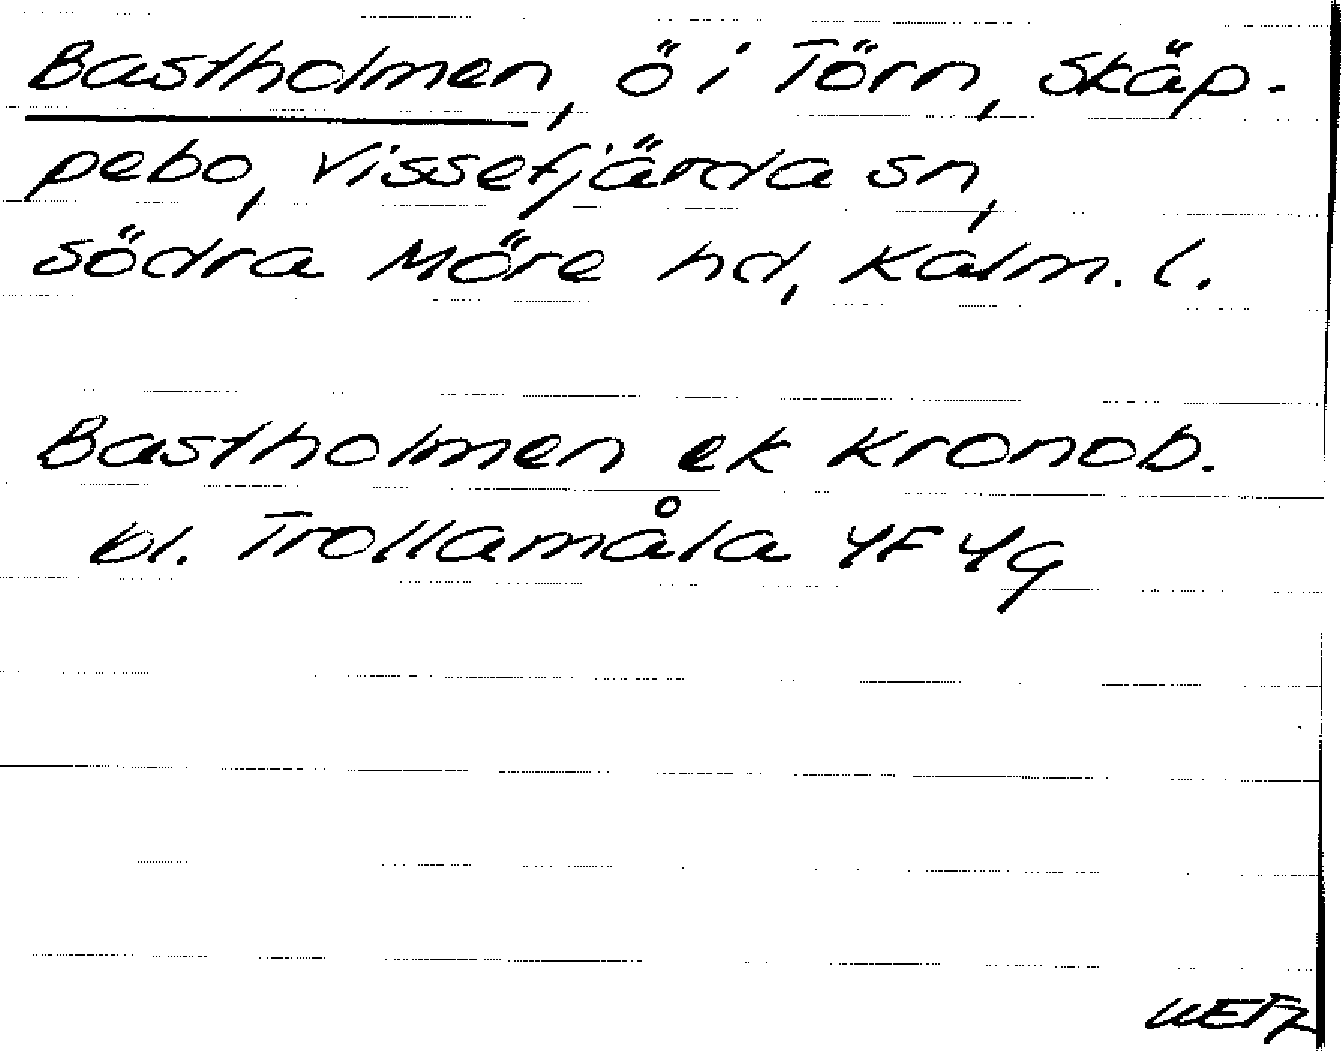 Bastholmen, ö i Törn, Skäp-
pebo, Vissefjärda sn,
södra Möre hd, Kalm. l.
Bastholmen ek Kronob.
bl. Trollamåla 4F4g